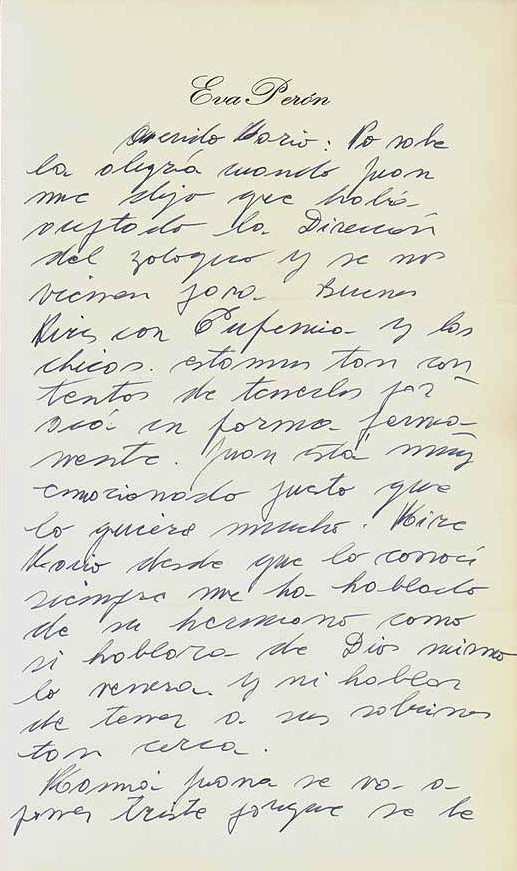 Eva Perón
Querido Mario: No sabe
la alegría cuando Juan
me dijo que había
aceptado la Dirección
del zologico y se nos
vienen para Buenos
Aires con Eufemia y los
chicos. estamos tan con
tentos de tenerlos por
acá en forma perma-
nente. Juan está muy
emocionado justo que
lo quiere mucho. Mire
Mario desde que lo conocí
siempre me ha hablado
de su hermano como
si hablara de Dios mismo
lo venera y ni hablar
de tener a sus sobrinos
tan cerca.
Mamá Juana se va a
poner triste porque se le